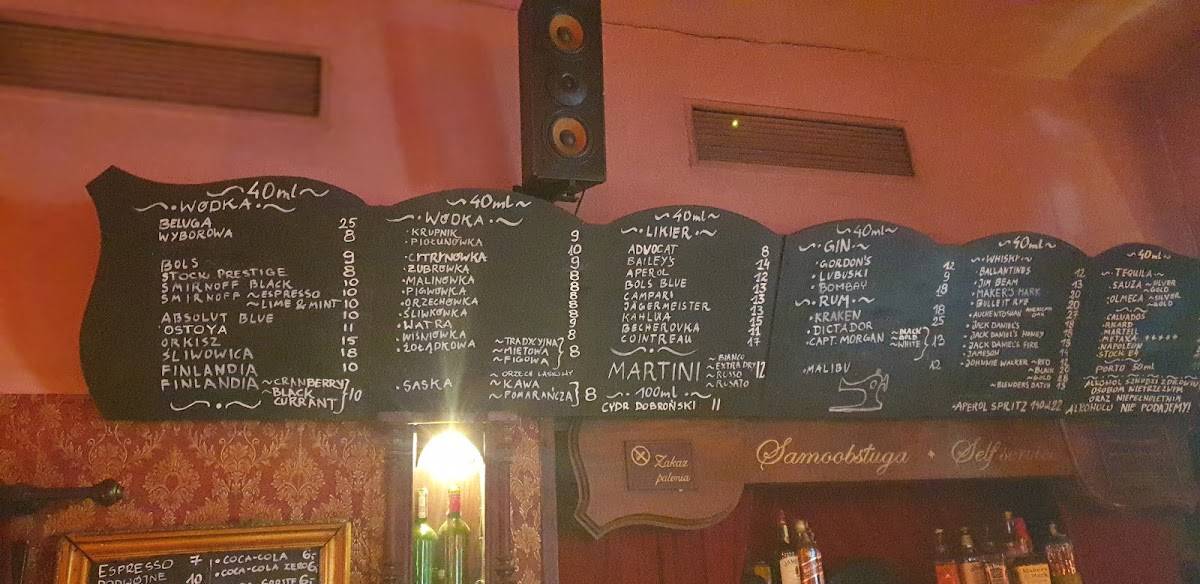 ~40ml~
~·WODKA·~
BELUGA 25
WYBOROWA 8
BOLS 9
STOCK PRESTIGE 8
SMIRNOFF BLACK 10
SMIRNOFF ~ESPRESSO 10
~LIME & MINT 10
ABSOLUT BLUE 10
OSTOYA 11
ORKISZ 15
ŚLIWOWICA 18
FINLANDIA 10
FINLANDIA ~CRANBERRY
~BLACK CURRANT } 10
~40ml~
~·WODKA·~
·KRUPNIK 9
·PIOŁUNÓWKA 10
·CYTRYNÓWKA 9
·ŻUBRÓWKA 8
·MALINÓWKA 8
·PIGWÓWKA
·ORZECHÓWKA
·ŚLIWKÓWKA
·WATRA
·WIŚNIÓWKA
·ŻOŁĄDKOWA ~TRADYCYJNA
~MIĘTOWA
~FIGOWA } 8
~ORZECH LASKOWY
·SASKA ~KAWA
~POMARAŃCZA } 8
~40ml~
~LIKIER~
ADVOCAT 8
BAILEY'S 14
APEROL 12
BOLS BLUE 13
CAMPARI 13
JÄGERMEISTER 13
KAHLUA
BECHEROVKA 11
COINTREAU 17
MARTINI ~BIANCO
~EXTRA DRY
~ROSSO
~ROSATO } 12
~100ml~
CYDR DOBROŃSKI 11
~40ml~
~·GIN·~
·GORDON'S 12
·LUBUSKI 9
·BOMBAY 18
~·RUM·~
·KRAKEN 18
·DICTADOR 25
·CAPT. MORGAN ~BLACK
~GOLD
~WHITE } 13
·MALIBU 12
~40ml~
~·WHISKY·~
·BALLANTINES 12
·JIM BEAM 13
·MAKER'S MARK 20
·BULLEIT RYE 20
·AUCHENTOSHAN AMERICAN
·JACK DANIEL'S
·JACK DANIEL'S HONEY
·JACK DANIEL'S FIRE
·JAMESON
·JOHNNIE WALKER ~RED
~GOLD
·APEROL SPRITZ 22
~40ml~
~TEQUILA~
·SAUZA ~SILVER
~GOLD
·OLMECA ~SILVER
~GOLD
CALVADOS
RICARD
MARTELL
METAXA *****
NAPOLEON
STOCK 84
PORTO 50ml
ALKOHOL SZKODZI ZDROWIU
OSOBOM NIETRZEŹWYM
ORAZ NIEPEŁNOLETNIM
ALKOHOLU NIE PODAJEMY!
Zakaz
palenia
Samoobsługa · Self service
ESPRESSO 7
PODWÓJNE 10
·COCA-COLA 6,-
·COCA-COLA ZERO 6,-
SPRITE 6,-